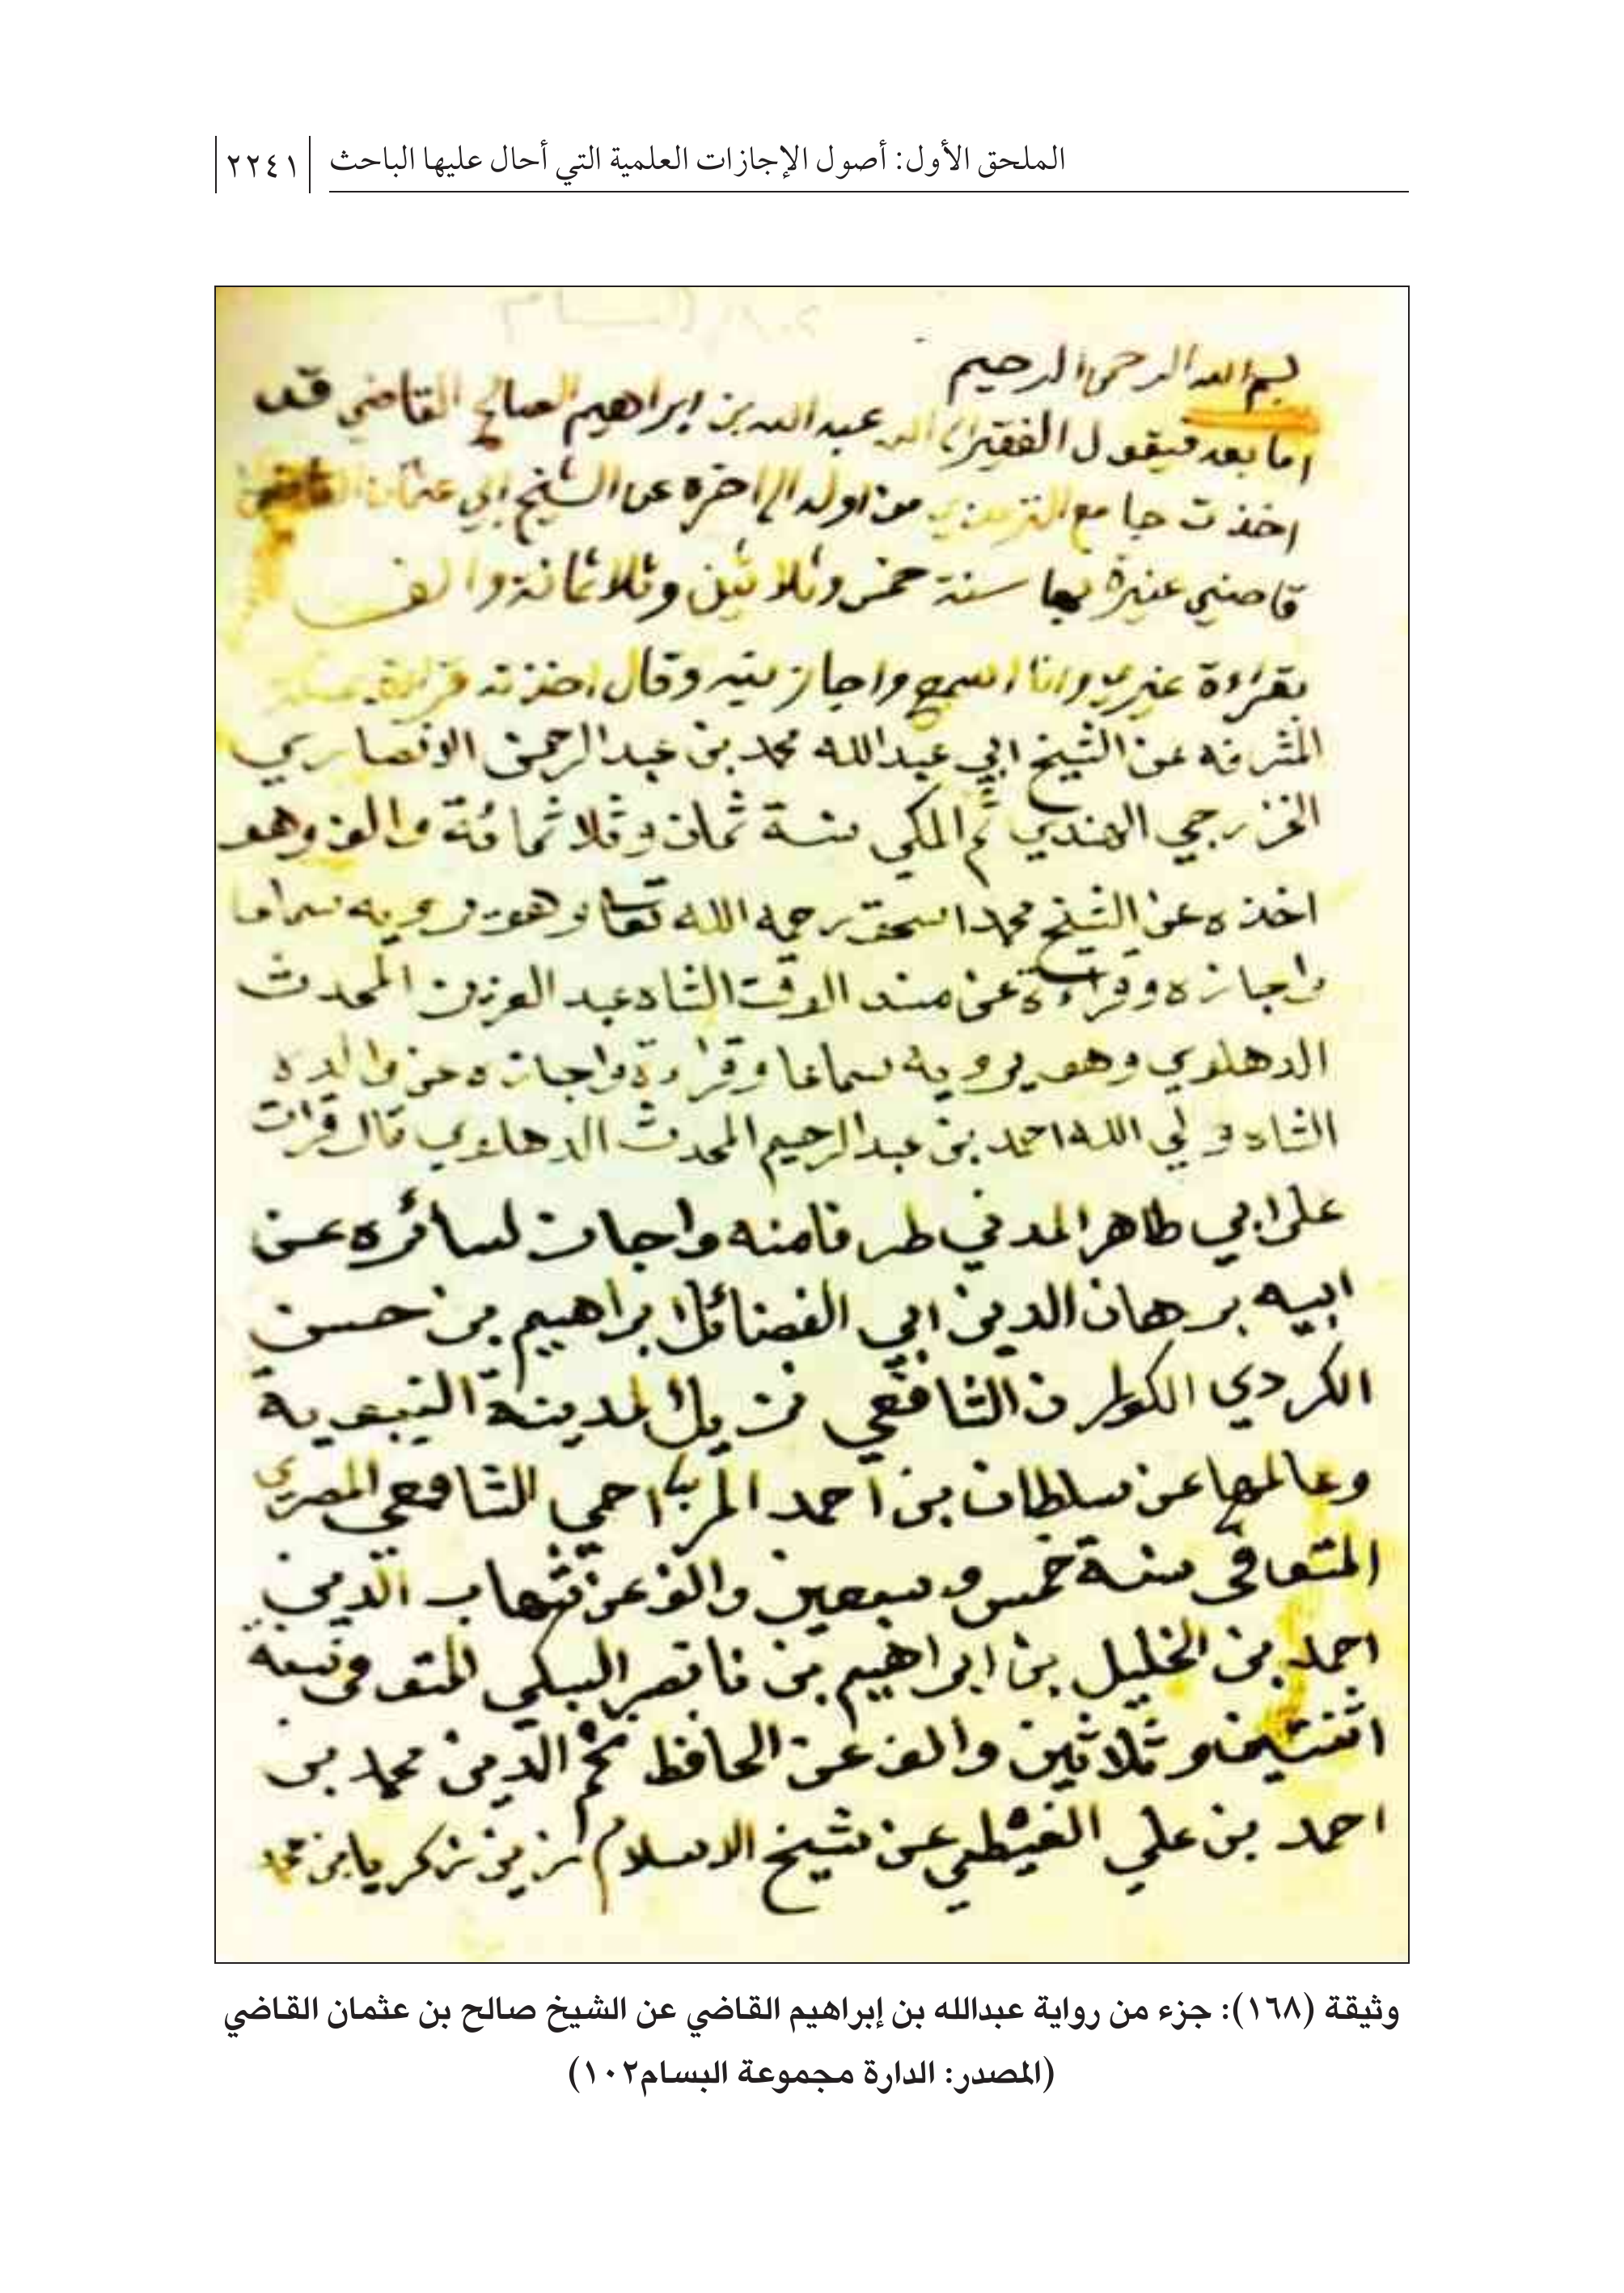 الملحق الأول: أصول الإجازات العلمية التي أحال عليها الباحث ٢٢٤١
بسم الله الرحمن الرحيم
اما بعد فيقول الفقير الى الله عبد الله بن ابراهيم الصالح القاضي قد
اخذت جامع الترمذي من اوله الى اخره عن الشيخ ابي عثمان القاضي
قاضي عنيزة بها سنة خمس وثلاثين وثلاثمائة والف
بقراءة غيري وانا اسمع واجازنيه وقال اخذته قراءة بمكة
المشرفه عن الشيخ ابي عبدالله محمد بن عبدالرحمن الانصاري
الخزرجي الهندي ثم المكي سنة ثمان وثلاثمائة والف وهو
اخذه عن الشيخ محمد اسحق رحمه الله تعالى وهو يرويه سماعا
واجازه وقراءة عن مسند الوقت الشاه عبد العزيز المحدث
الدهلوي وهو يرويه سماعا وقراءة واجازه عن والده
الشاه ولي الله احمد بن عبدالرحيم المحدث الدهلوي قال قرات
على ابي طاهر المدني طرفا منه واجاز لسائره عن
ابيه برهان الدين ابي الفضائل ابراهيم بن حسن
الكردي الكوراني الشافعي نزيل المدينة النبوية
وعالمها عن سلطان بن احمد المزاحي الشافعي المصري
المتوفى سنة خمس وسبعين والف عن شهاب الدين
احمد بن الخليل بن ابراهيم بن ناصر السبكي المتوفى سنة
اثنتين وثلاثين والف عن الحافظ نجم الدين محمد بن
احمد بن علي الغيطي عن شيخ الاسلام زين زكريا بن محمد
وثيقة (١٦٨): جزء من رواية عبدالله بن إبراهيم القاضي عن الشيخ صالح بن عثمان القاضي
(المصدر: الدارة مجموعة البسام١٠٢)